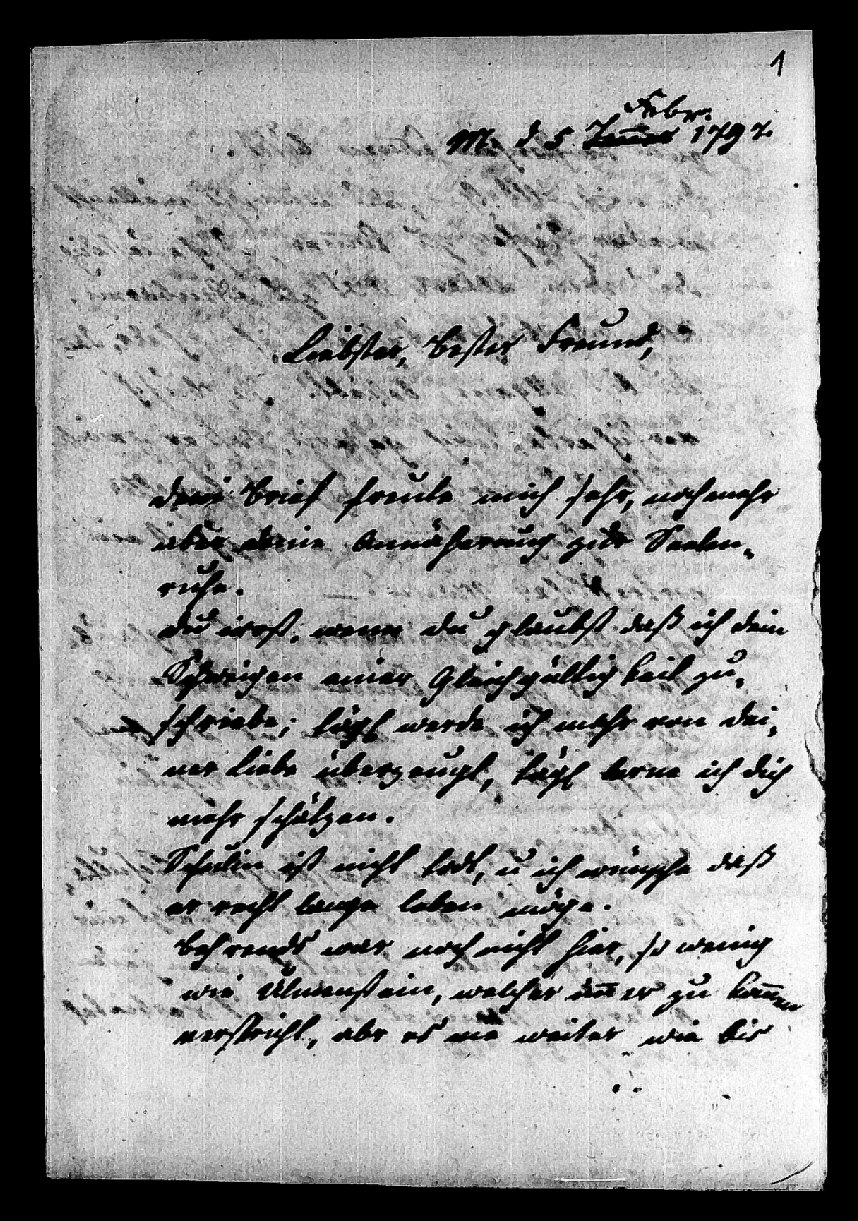 1
Febr.
M. d. 5 Janner 1797.
Liebster, bester Freund,
dein Brief freute mich sehr, noch mehr
aber deine Annäherung zur Seelen-
ruhe.
Du irrst, wenn du glaubst daß ich dein
Schweigen einer Gleichgültigkeit zu-
schriebe; tägl werde ich mehr von dei-
ner Liebe überzeugt, tägl lerne ich dich
mehr schätzen.
Schulin ist nicht todt, u ich wünsche daß
er recht lange leben möge.
Behrends war noch nicht hier, so wenig
wie Ulmenstein, welcher im̅er zu kom̅en
verspricht, aber es nie weiter wie bis